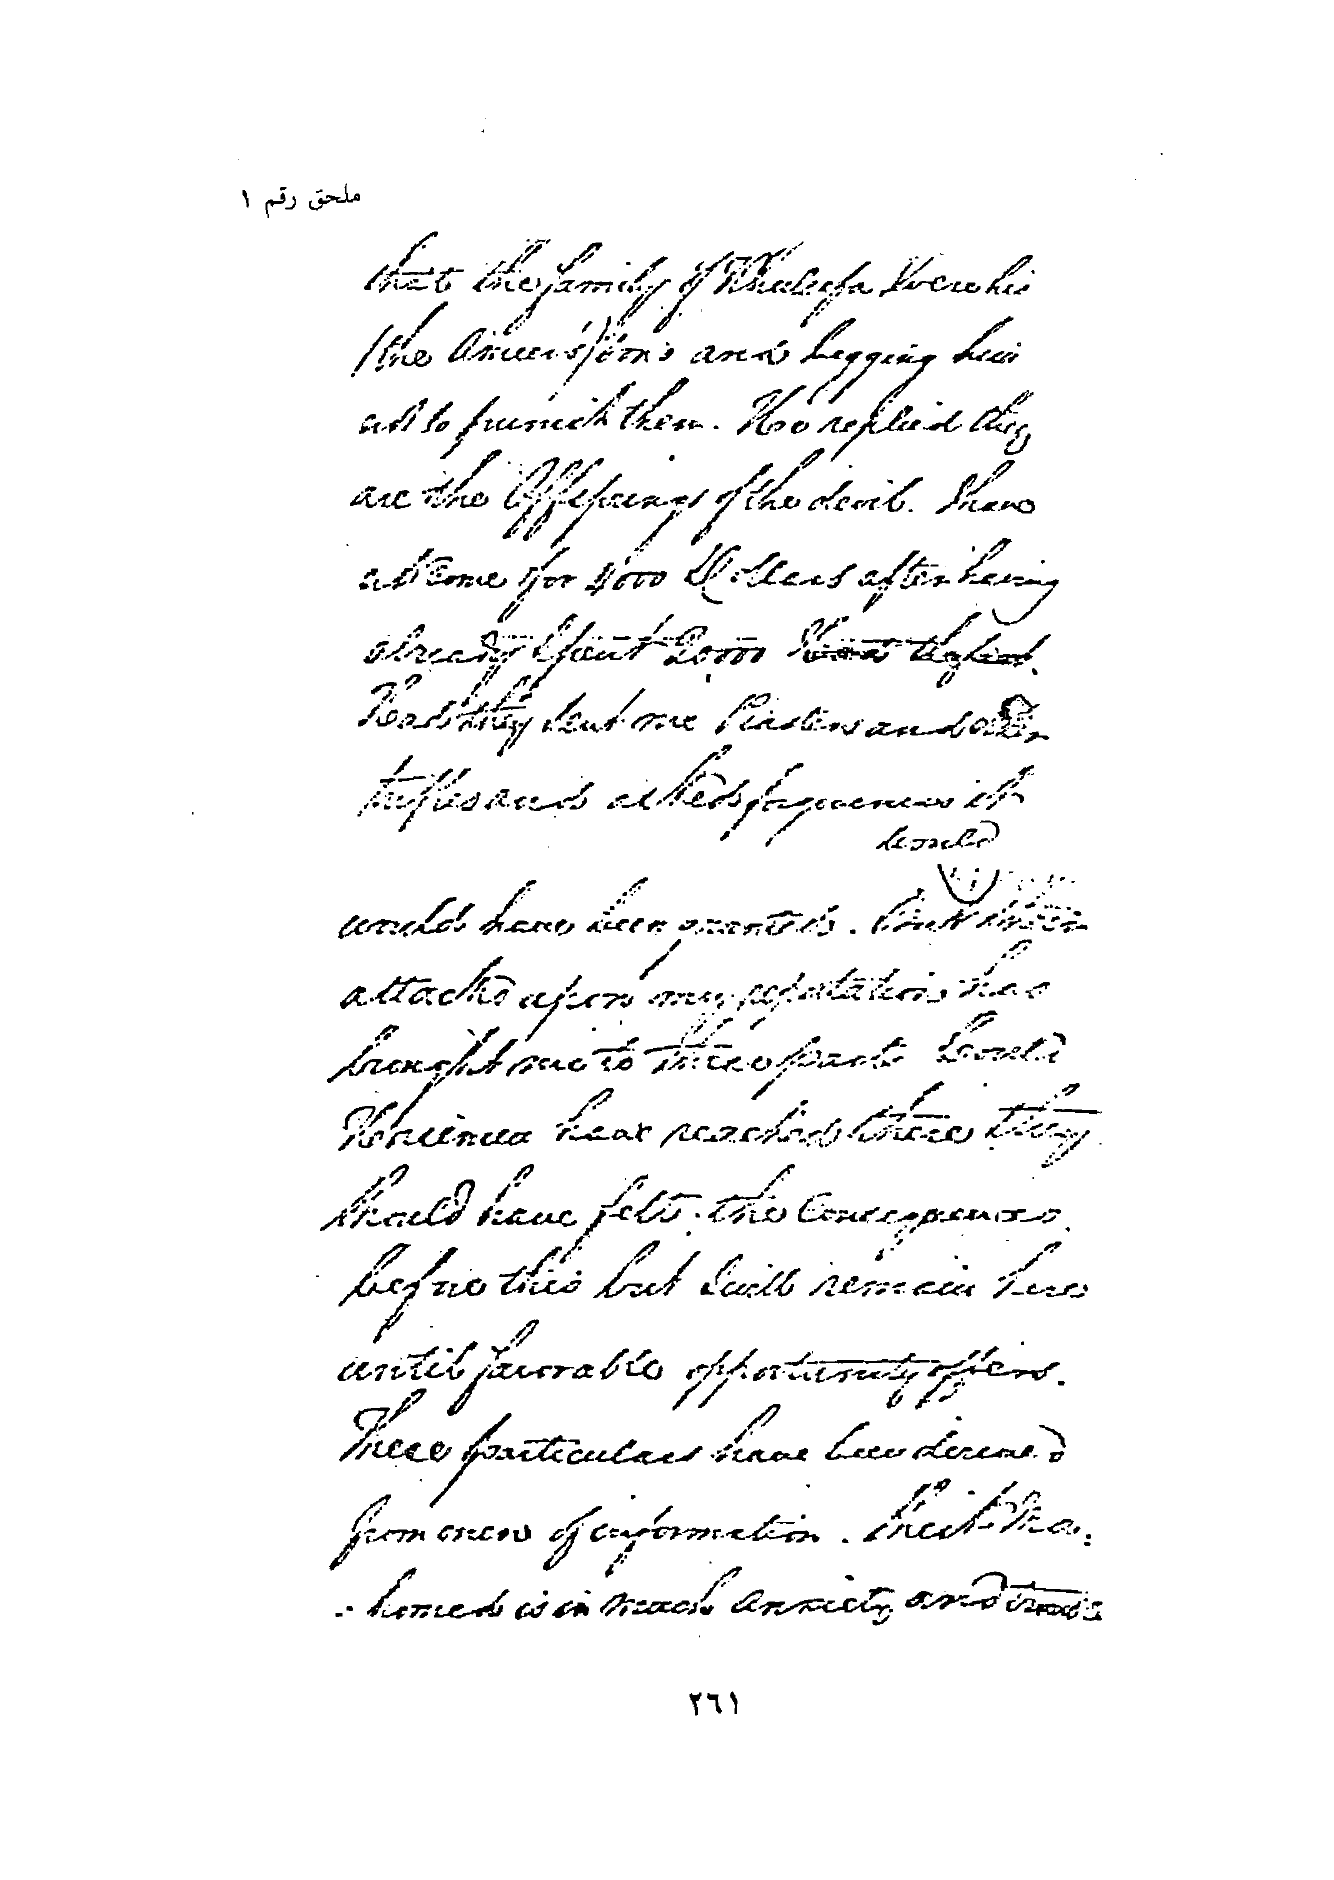 ملحق رقم ١
that the family of Khaleefa were his
(the Ameer's) sons and begging him
not to punish them. He replied they
are the Offsprings of the devil. I have
not come for 4000 Dollars after having
already spent 20,000
Had they sent me Piasters and other
trifles and asked forgiveness it
would
would have been granted. But their
attacks upon my reputation has
brought me to these parts. Could
have reached there they
should have felt the Consequences
before this but I will remain here
until favorable opportunity offers.
These particulars have been derived
from men of information. Sheik Ma-
-homed is in much anxiety and
٢٦١